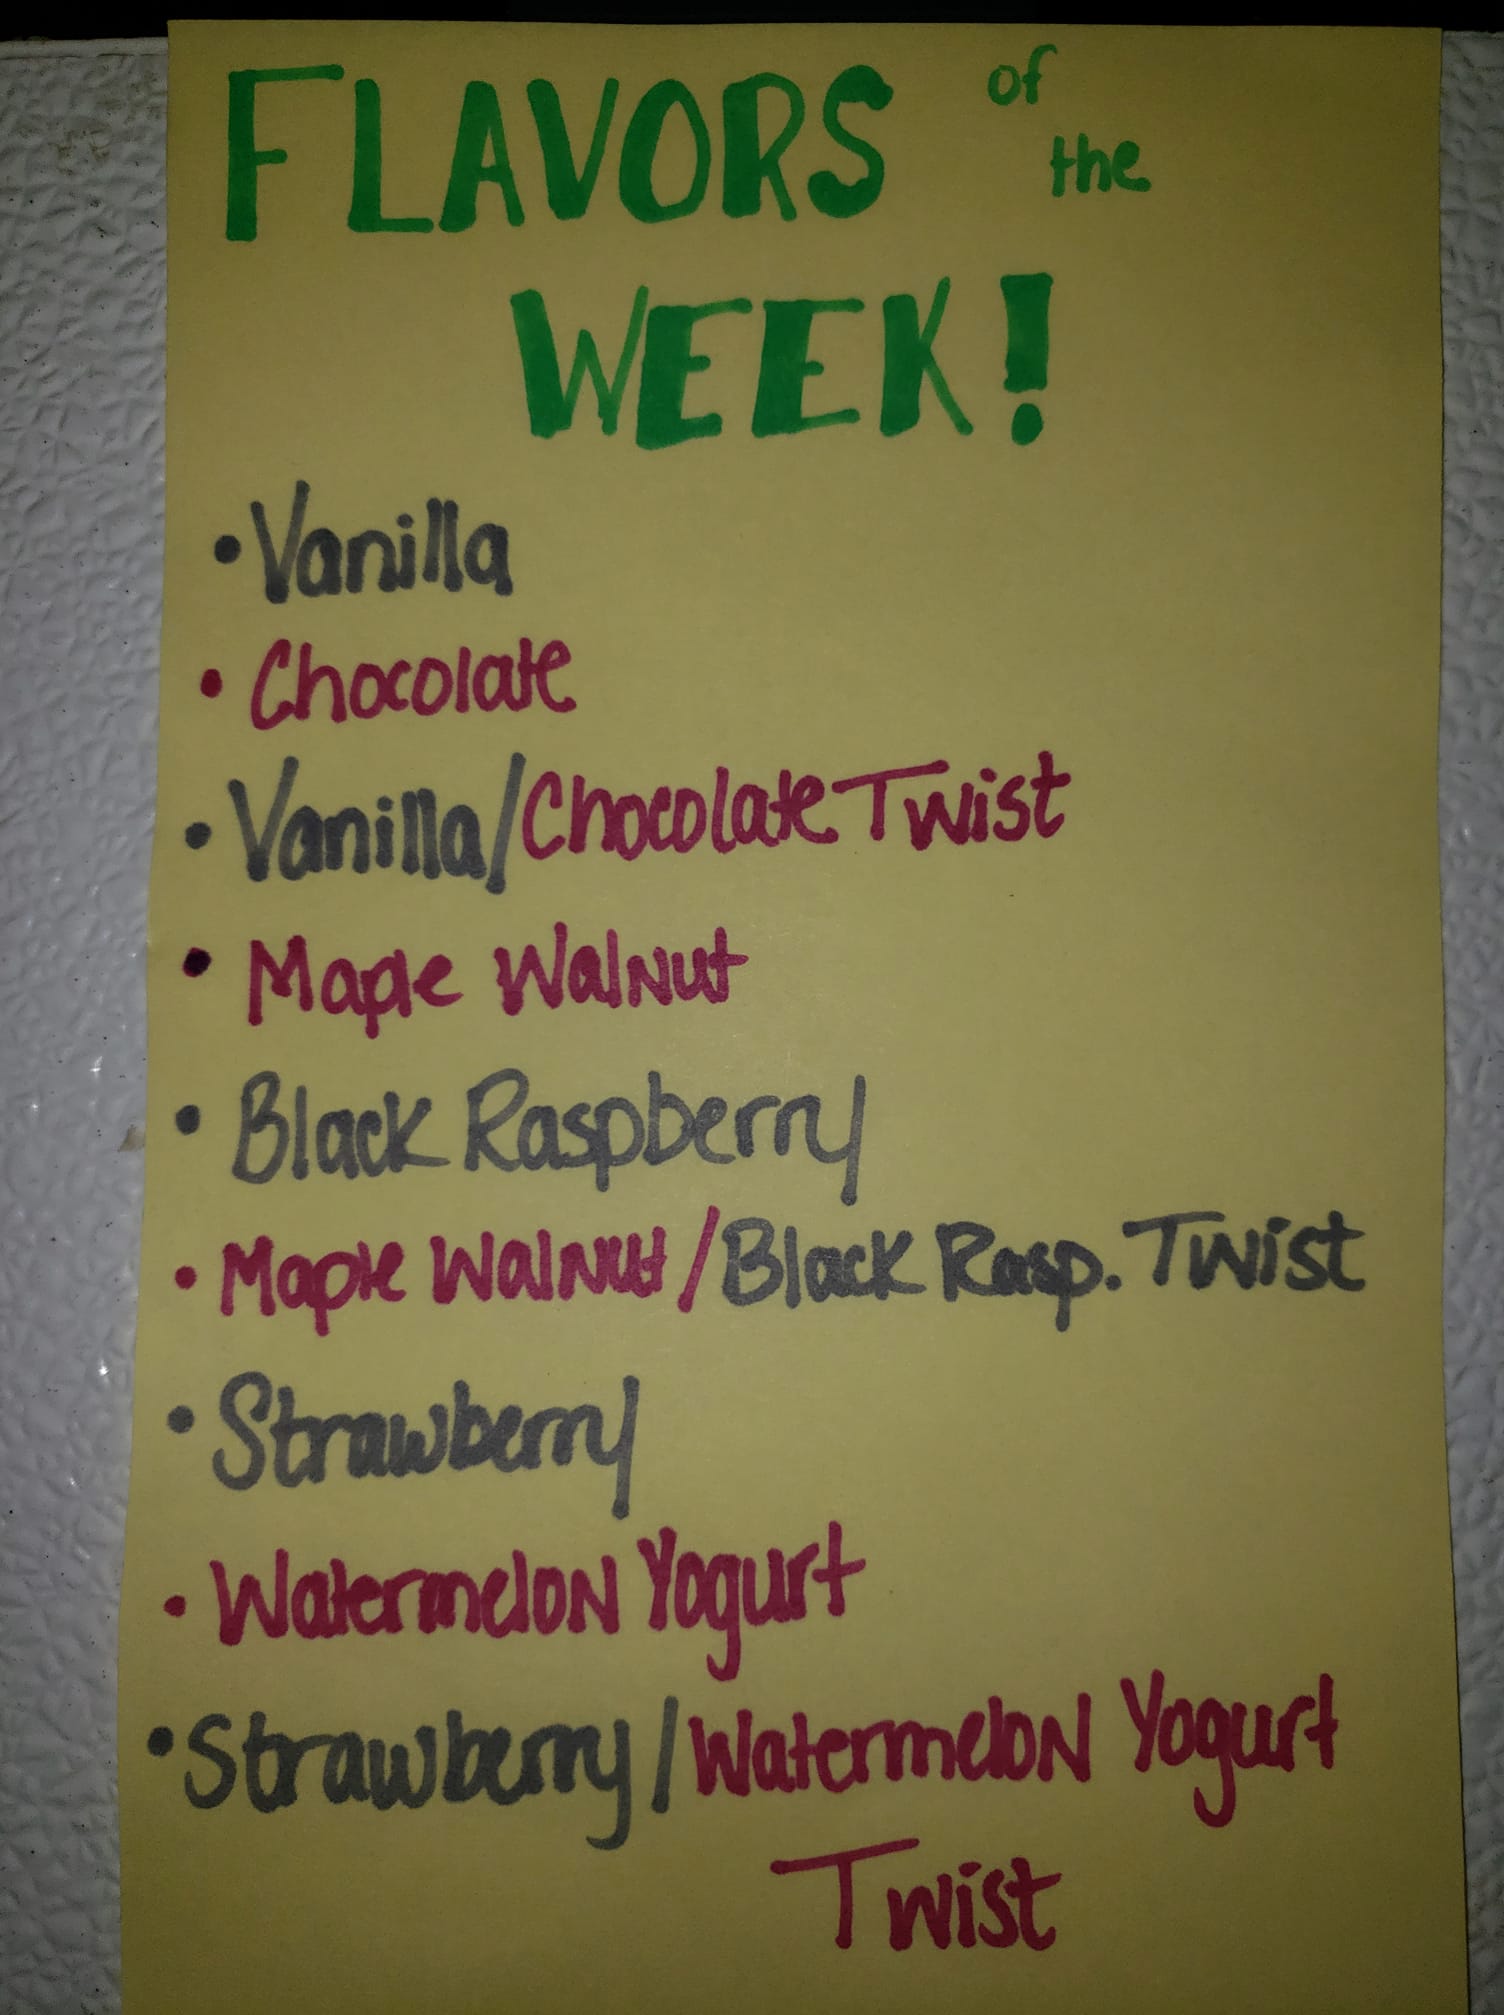 FLAVORS of the
WEEK!
• Vanilla
• Chocolate
• Vanilla/Chocolate Twist
• Maple Walnut
• Black Raspberry
• Maple Walnut/Black Rasp. Twist
• Strawberry
• Watermelon Yogurt
• Strawberry/Watermelon Yogurt
Twist